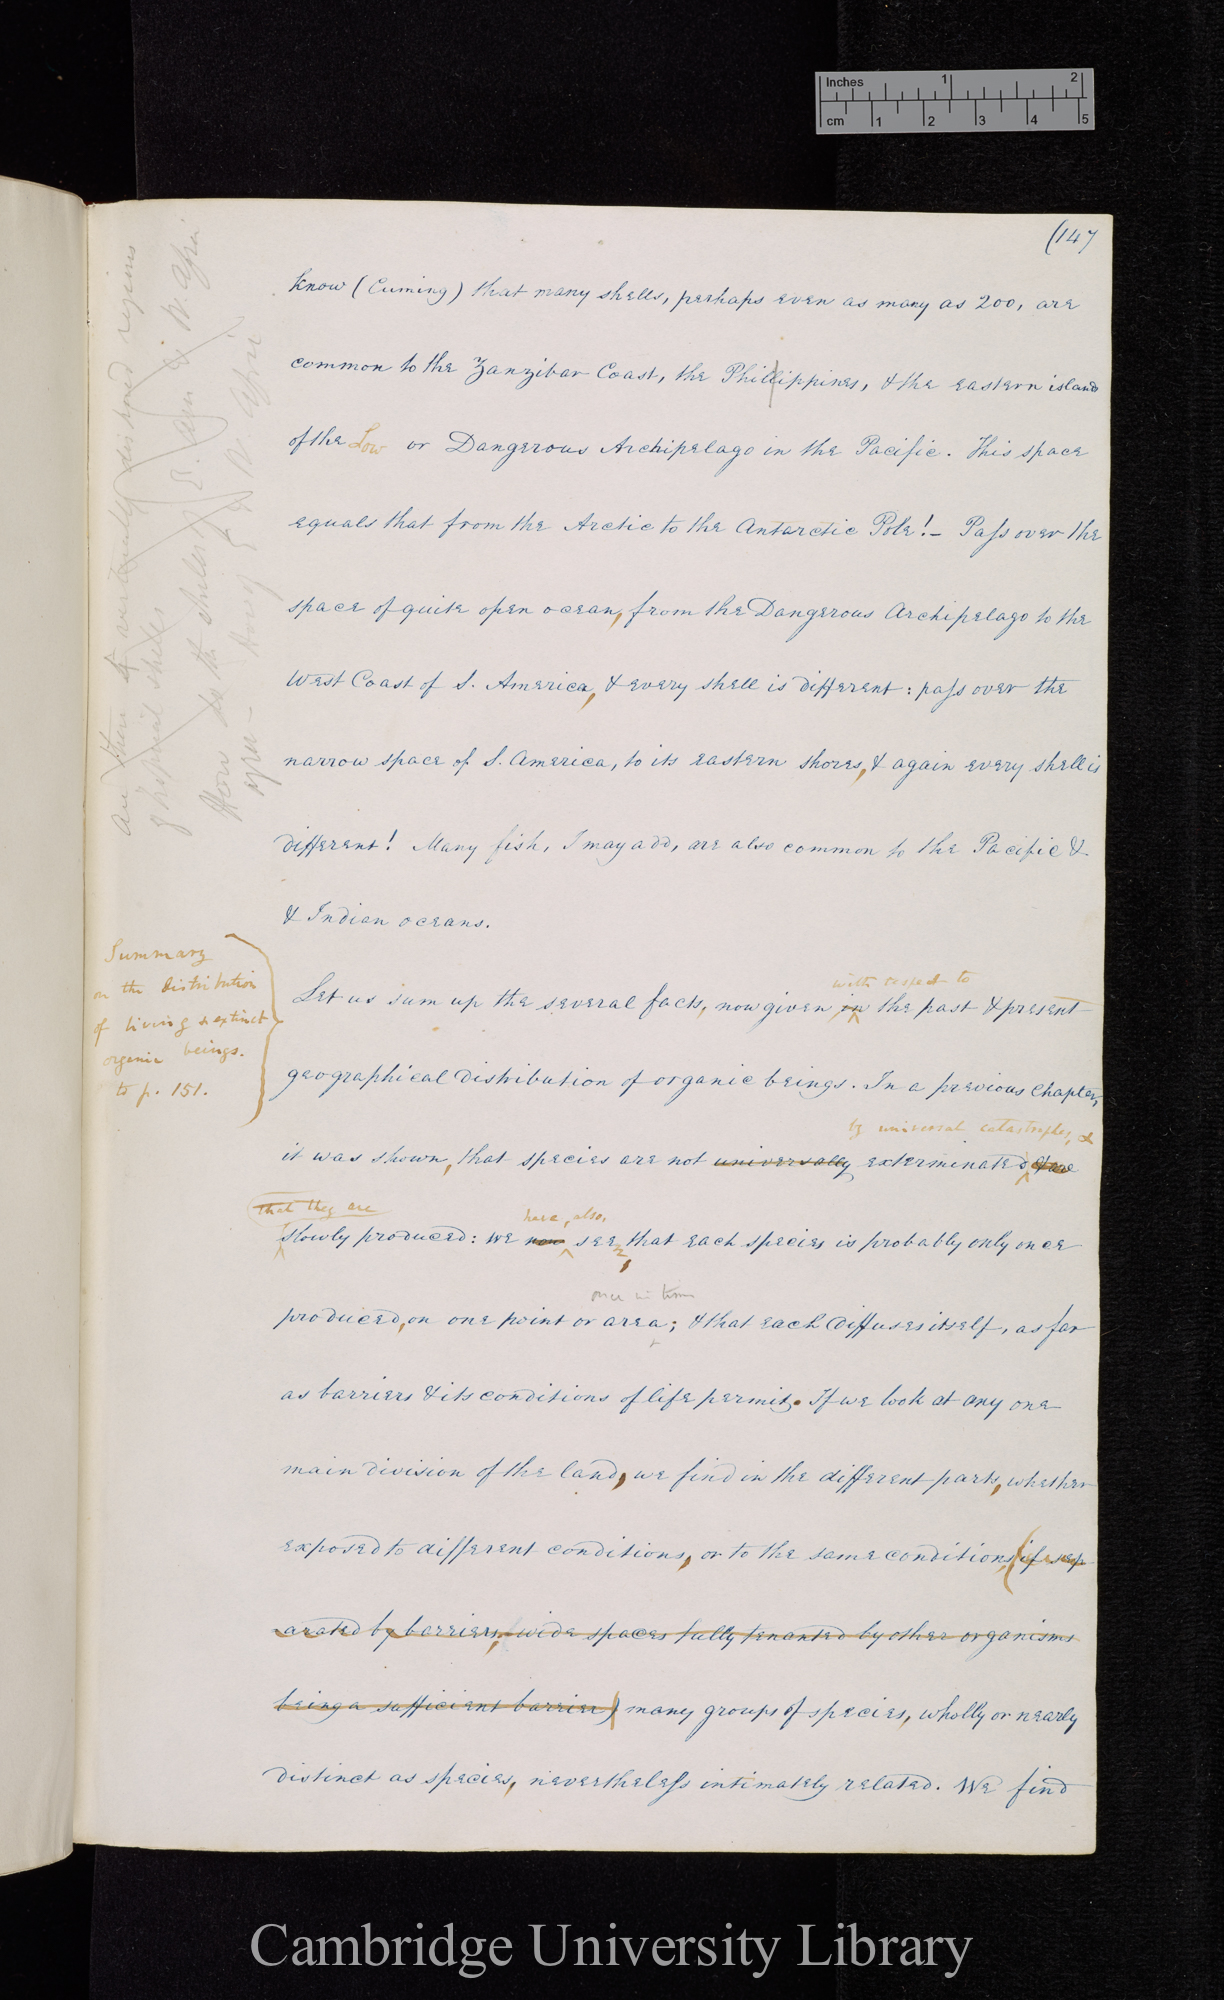 Inches 1 2
cm 1 2 3 4 5
(147
know (Cuming) that many shells, perhaps even as many as 200, are
common to the Zanzibar Coast, the Phillippines, & the eastern islands
of the Low or Dangerous Archipelago in the Pacific. This space
equals that from the Arctic to the Antarctic Pole! – Pass over the
space of quite open ocean, from the Dangerous Archipelago to the
West Coast of S. America, & every shell is different: pass over the
narrow space of S. America, to its eastern shores, & again every shell is
different! Many fish, I may add, are also common to the Pacific &
& Indian oceans.
Summary
on the distribution
of living & extinct
organic beings.
to p. 151.
with respect to
Let us sum up the several facts, now given in the past & present
geographical distribution of organic beings. In a previous chapter,
by universal catastrophes, &
it was shown, that species are not universally exterminated & are
that they are
here, also,
slowly produced: we now see, that each species is probably only once
once in time
produced, on one point or area; & that each diffuses itself, as far
as barriers & its conditions of life permit. If we look at any one
main division of the land, we find in the different parts, whether
exposed to different conditions, or to the same conditions, (if sep-
arated by barriers, wide spaces fully tenanted by other organisms
being a sufficient barrier) many groups of species, wholly or nearly
distinct as species, nevertheless intimately related. We find
Cambridge University Library